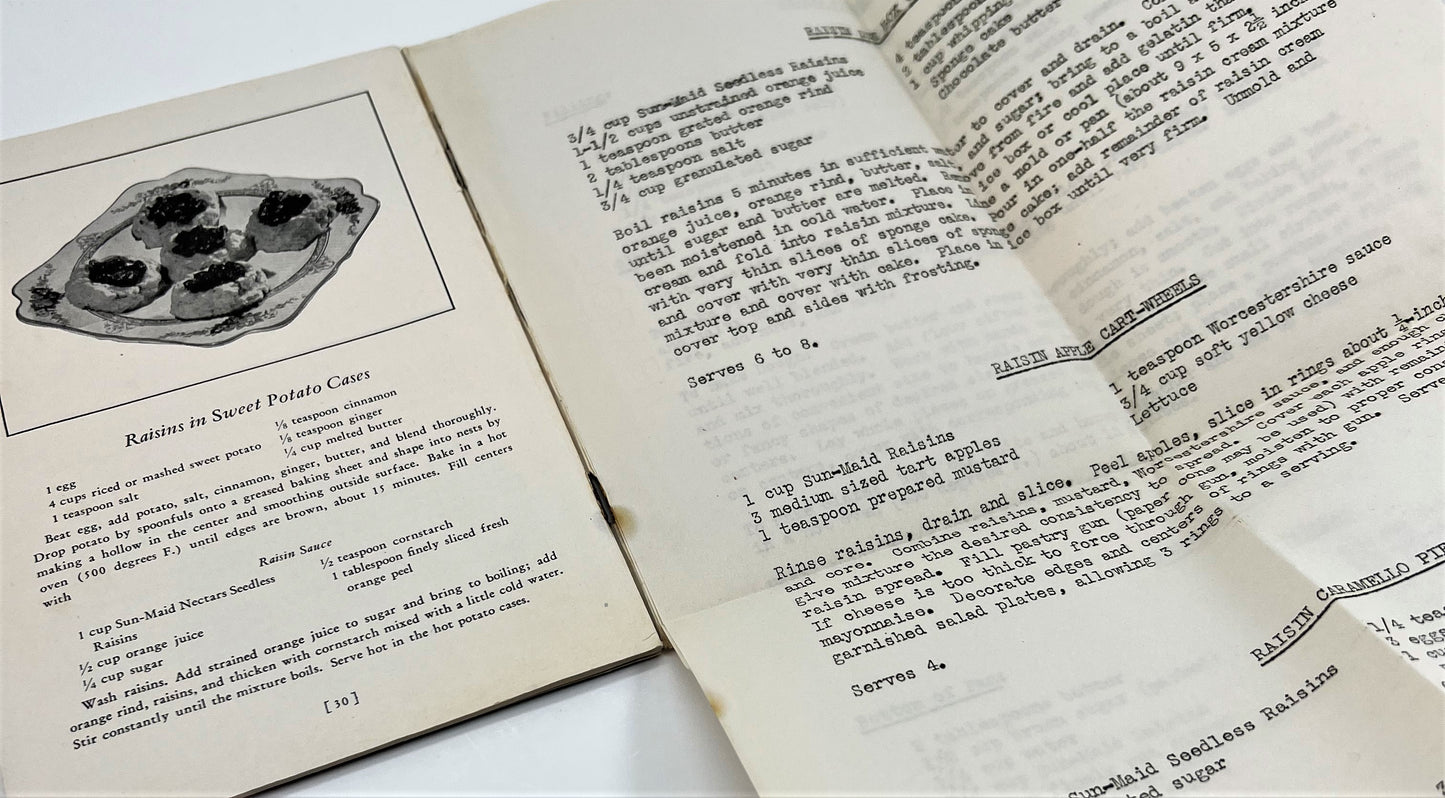 Raisins in Sweet Potato Cases
1 egg
4 cups riced or mashed sweet potato
1 teaspoon salt
⅛ teaspoon cinnamon
⅛ teaspoon ginger
¼ cup melted butter
Beat egg, add potato, salt, cinnamon, ginger, butter, and blend thoroughly.
Drop potato by spoonfuls onto a greased baking sheet and shape into nests by
making a hollow in the center and smoothing outside surface. Bake in a hot
oven (500 degrees F.) until edges are brown, about 15 minutes. Fill centers
with
Raisin Sauce
1 cup Sun-Maid Nectars Seedless
Raisins
½ cup orange juice
¼ cup sugar
½ teaspoon cornstarch
1 tablespoon finely sliced fresh
orange peel
Wash raisins. Add strained orange juice to sugar and bring to boiling; add
orange rind, raisins, and thicken with cornstarch mixed with a little cold water.
Stir constantly until the mixture boils. Serve hot in the hot potato cases.
[ 30 ]
RAISIN
3/4 cup Sun-Maid Seedless Raisins
1-1/2 cups unstrained orange juice
1 teaspoon grated orange rind
2 tablespoons butter
1/4 teaspoon salt
3/4 cup granulated sugar
4
2
2 cup whipping
1 Sponge cake
Chocolate butter
Boil raisins 5 minutes in sufficient water to cover and drain.
orange juice, orange rind, butter, salt and sugar; bring to a boil
until sugar and butter are melted. from fire and add gelatin
been moistened in cold water. Place in ice box or cool place until firm.
cream and fold into raisin mixture. Line a mold or pan (about 9 x 5 x 2½
with very thin slices of sponge cake. Pour in one-half the raisin cream mixture
and cover with very thin slices of sponge cake; add remainder of raisin cream
mixture and cover with cake. Place in ice box until very firm. Unmold and
cover top and sides with frosting.
Serves 6 to 8.
RAISIN APPLE CART-WHEELS
1 cup Sun-Maid Raisins
3 medium sized tart apples
1 teaspoon prepared mustard
1 teaspoon Worcestershire sauce
3/4 cup soft yellow cheese
Lettuce
Rinse raisins, drain and slice. Peel apples, slice in rings about ¼-inch
and core. Combine raisins, mustard, Worcestershire sauce, and enough
give mixture the desired consistency to spread. Cover each apple ring
raisin spread. Fill pastry gun (paper cone may be used) with remain
If cheese is too thick to force through gun, moisten to proper
mayonnaise. Decorate edges and centers of rings with gun. Serve
garnished salad plates, allowing 3 rings to a serving.
Serves 4.
RAISIN CARAMELLO PIE
Sun-Maid Seedless Raisins
sugar
1/4
3 eggs
1